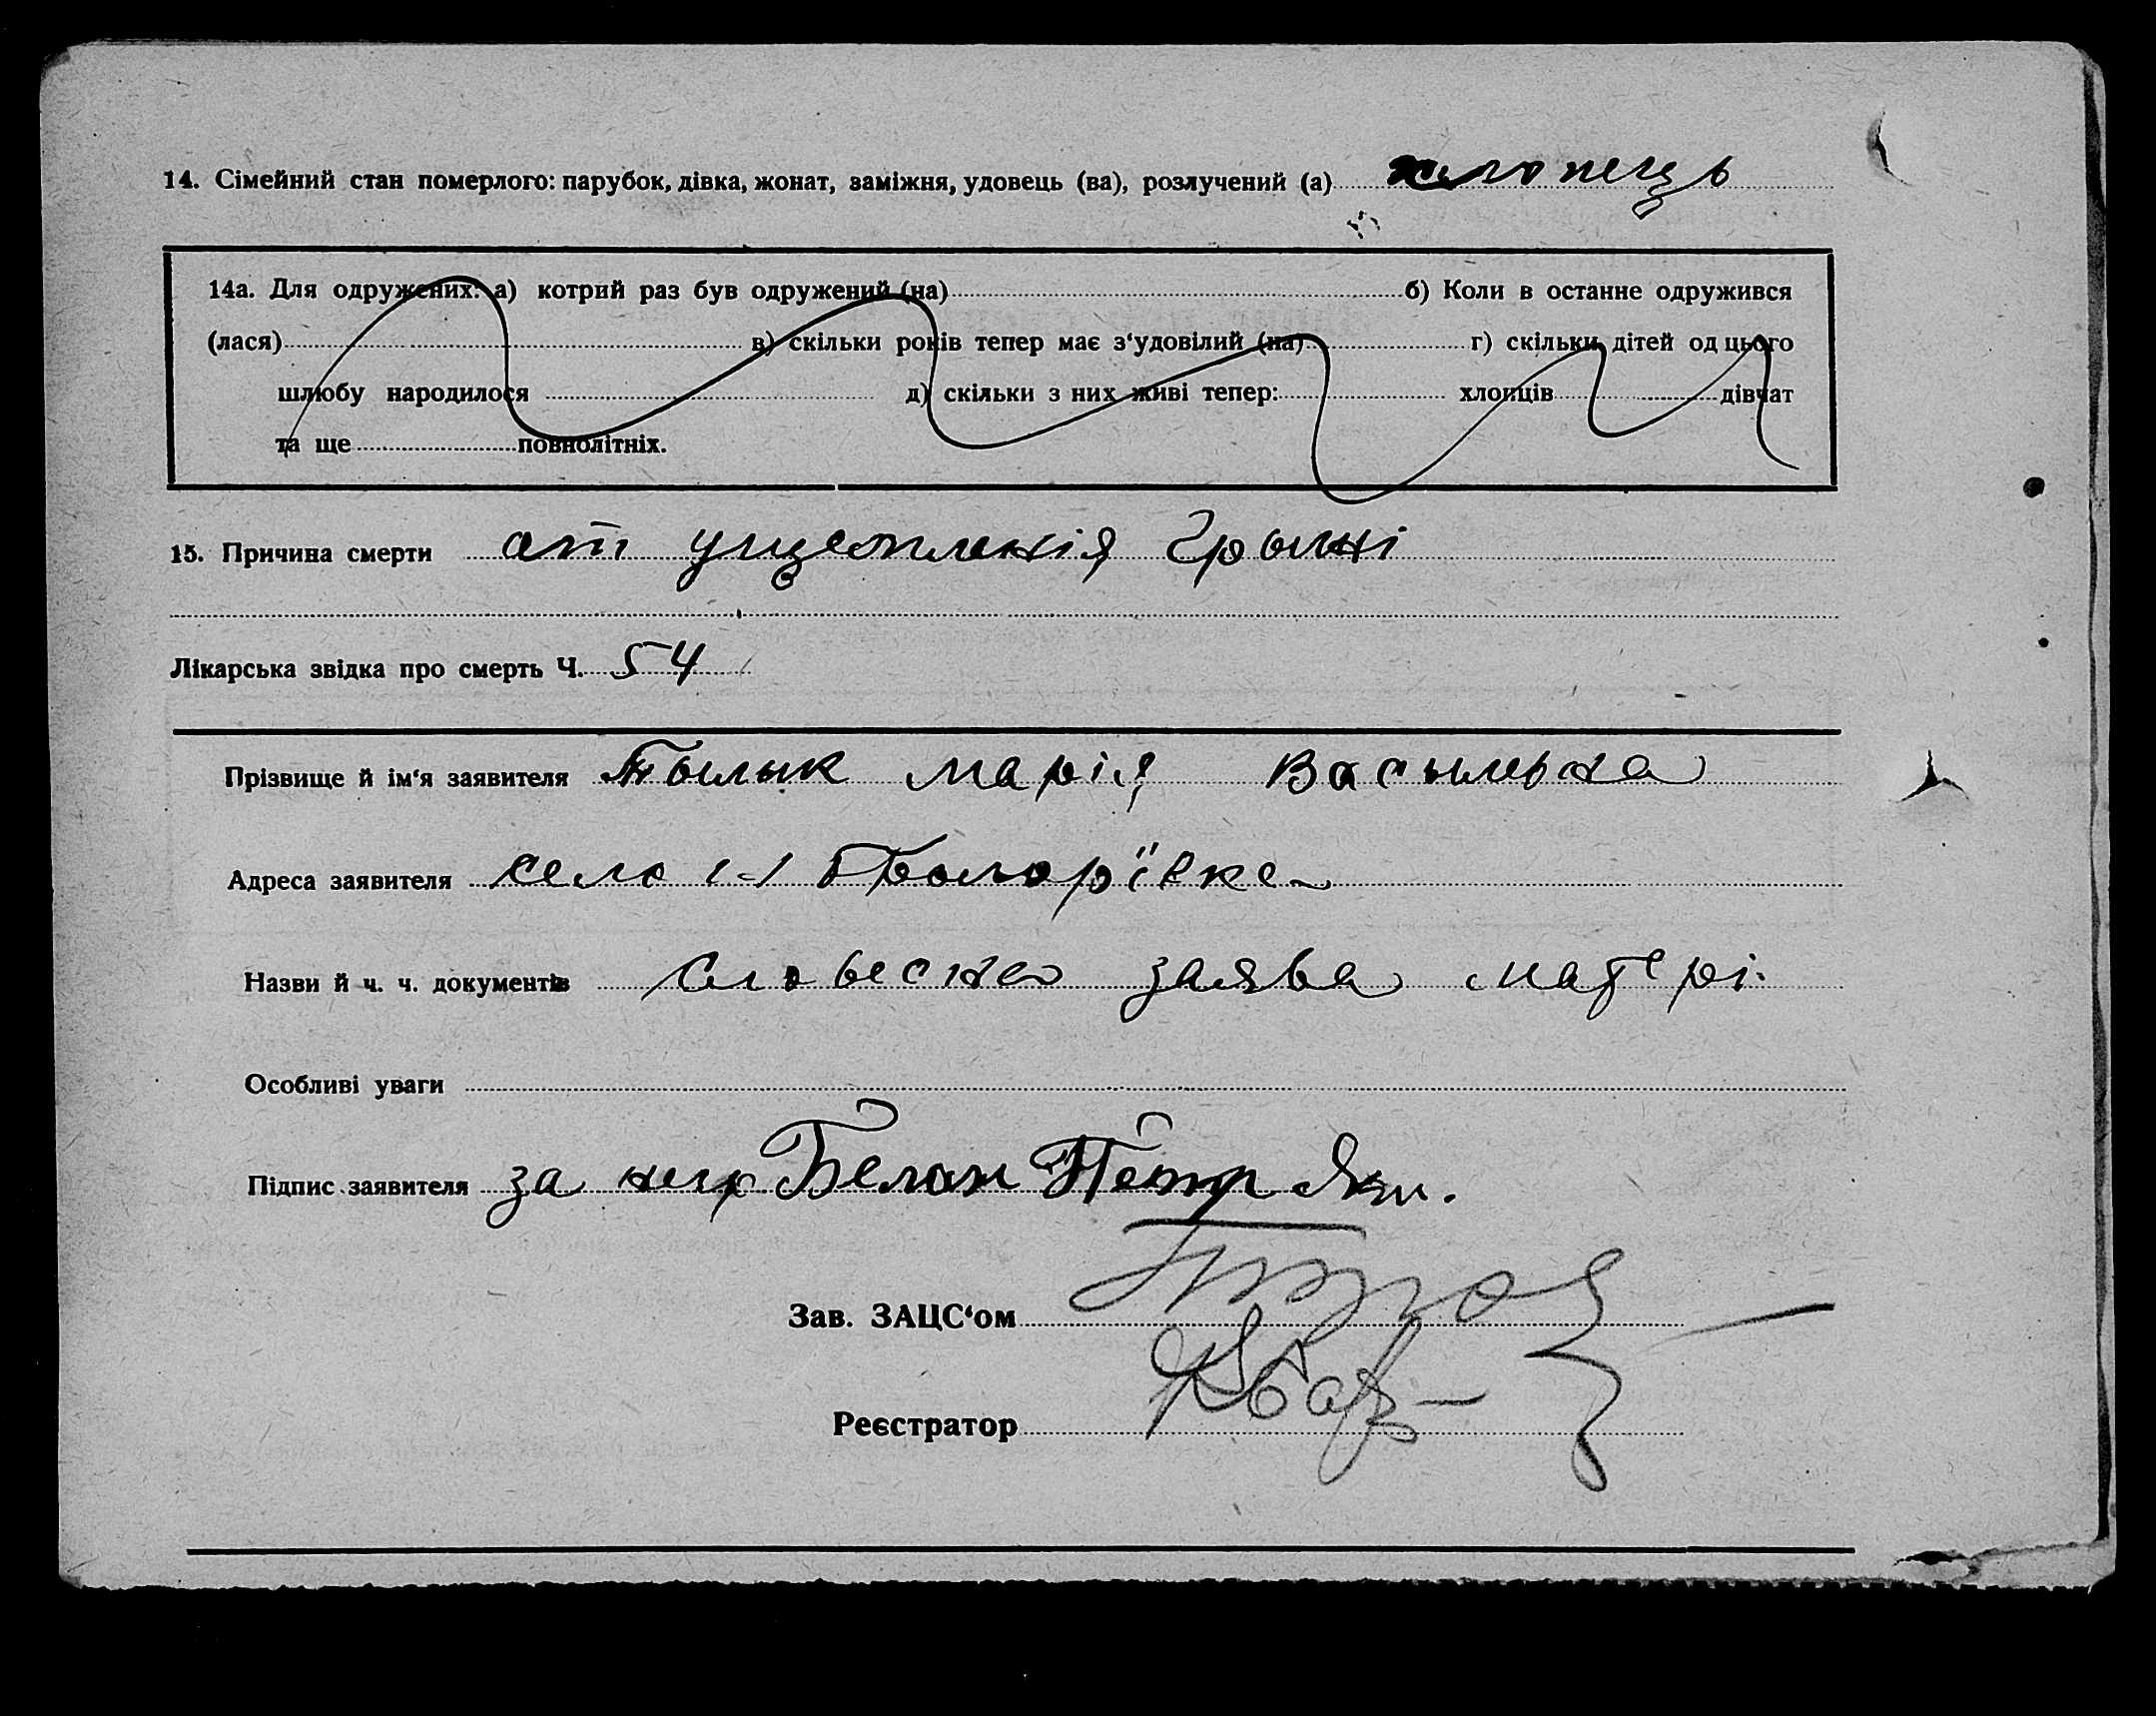 14. Сімейний стан померлого: парубок, дівка, жонат, заміжня, удовець (ва), розлучений (а) хлопець
14а. Для одружених: а) котрий раз був одружений (на) б) Коли в останне одружився
(лася) в) скільки років тепер має з‘удовілий (на) г) скільки дітей од цього
шлюбу народилося д) скільки з них живі тепер: хлопців дівчат
та ще повнолітніх.
15. Причина смерти от ущемленія грыжі
Лікарська звідка про смерть Ч. 54
Прізвище й ім‘я заявителя Марія Васильвна
Адреса заявителя село
Назви й ч. ч. документів словесна заява матері.
Особливі уваги
Підпис заявителя за нея Белан Пётр Як.
Зав. ЗАЦС‘ом
Реєстратор